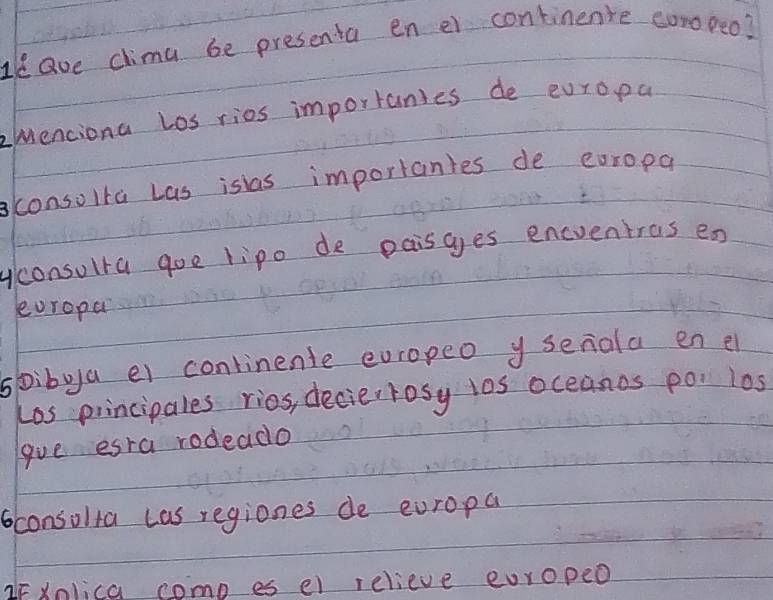 1¿Que clima se presenta en el continente europeo?
2 Menciona Los rios importantes de europa
3 consulta Las islas importantes de europa
4 consulta que tipo de paisajes encuentras en
europa
5 Dibuja el continente europeo y señala en el
Los principales rios, deciertos y los oceanos por los
que esta rodeado
6 consulta Las regiones de europa
7 Explica como es el relieve europeo